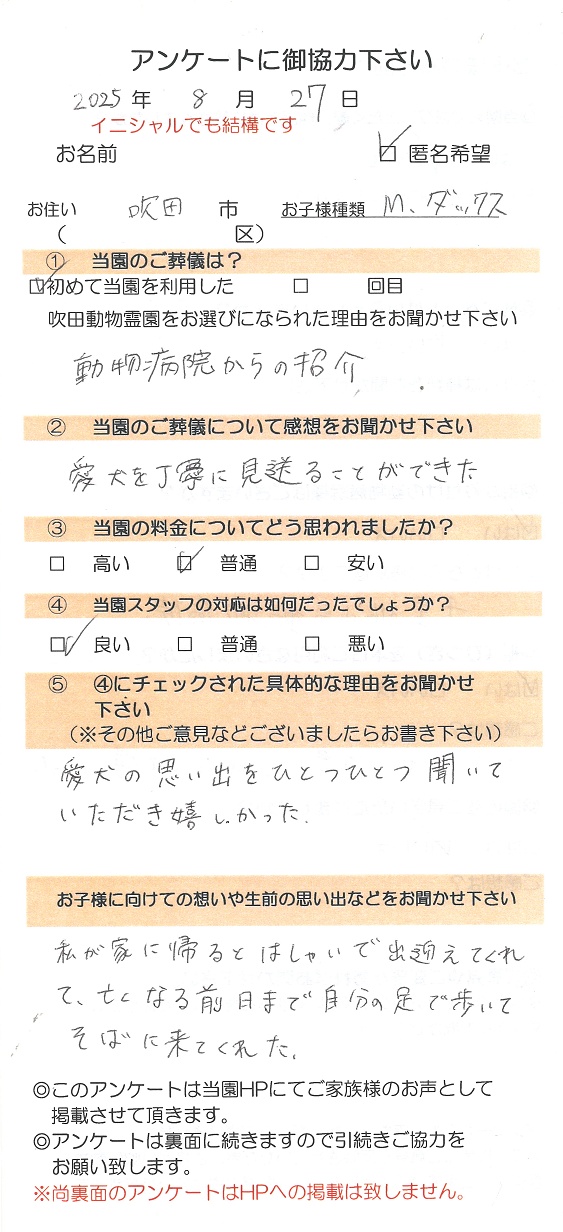 アンケートに御協力下さい
2025年 8月 27日
イニシャルでも結構です
お名前 ☑匿名希望
お住い 吹田 市 お子様種類 M、ダックス
( 区)
① 当園のご葬儀は?
☑初めて当園を利用した □ 回目
吹田動物霊園をお選びになられた理由をお聞かせ下さい
動物病院からの紹介.
② 当園のご葬儀について感想をお聞かせ下さい
愛犬を丁寧に見送ることができた
③ 当園の料金についてどう思われましたか?
□ 高い ☑ 普通 □ 安い
④ 当園スタッフの対応は如何だったでしょうか?
☑ 良い □ 普通 □ 悪い
⑤ ④にチェックされた具体的な理由をお聞かせ
下さい
(※その他ご意見などございましたらお書き下さい)
愛犬の思い出をひとつひとつ聞いて
いただき嬉しかった.
お子様に向けての想いや生前の思い出などをお聞かせ下さい
私が家に帰るとはしゃいで出迎えてくれ
て、亡くなる前日まで自分の足で歩いて
そばに来てくれた.
◎このアンケートは当園HPにてご家族様のお声として
掲載させて頂きます。
◎アンケートは裏面に続きますので引続きご協力を
お願い致します。
※尚裏面のアンケートはHPへの掲載は致しません。